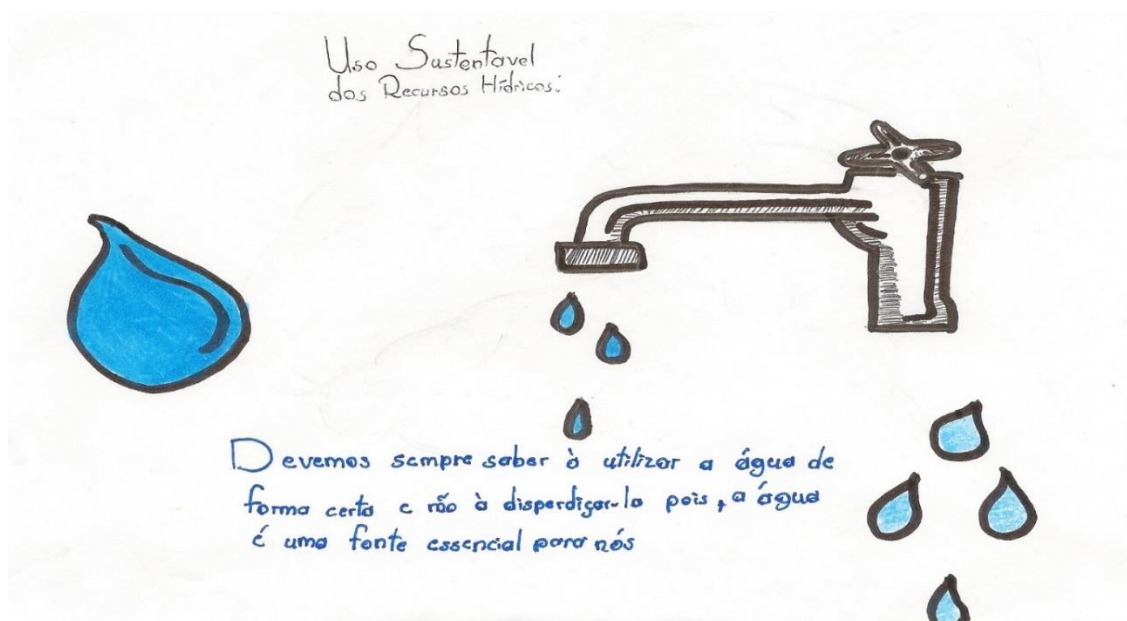 Uso Sustentável
dos Recursos Hídricos:
Devemos sempre saber à utilizar a água de
forma certa e não à disperdiçar-la pois, a água
é uma fonte essencial para nós